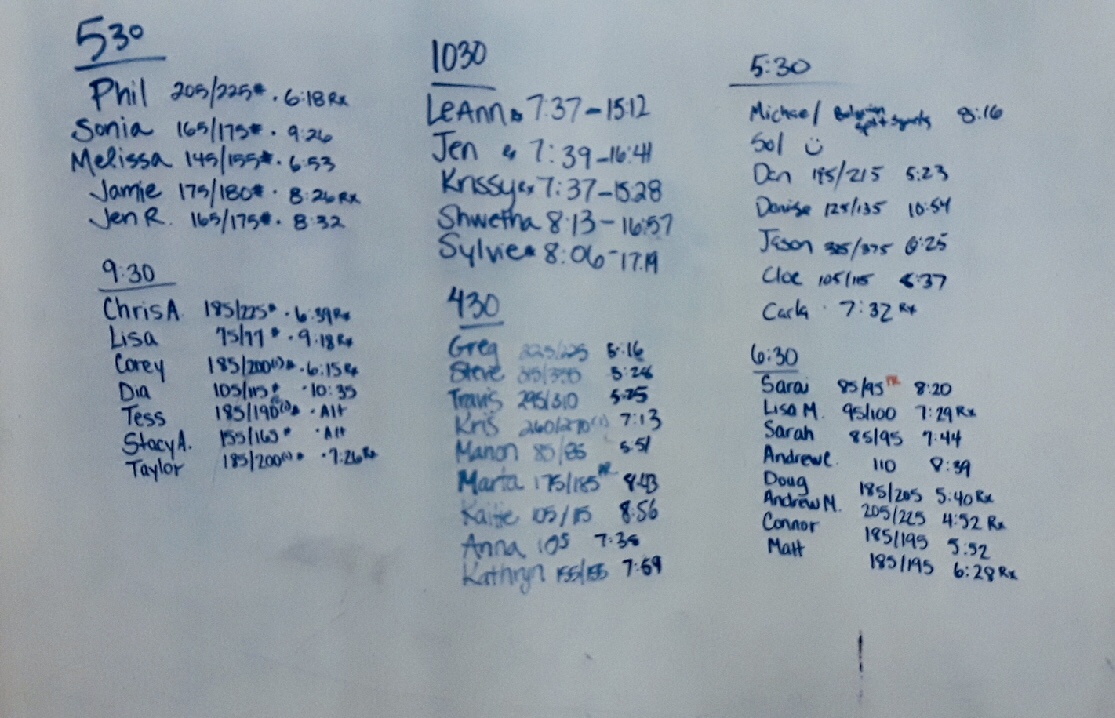 530
Phil 205/225# . 6:18 Rx
Sonia 165/175# . 9:26
Melissa 145/155# . 6:53
Jamie 175/180# . 8:26 Rx
Jen R. 165/175# . 8:32
9:30
Chris A. 185/225# . 6:39 Rx
Lisa 75/77# . 9:18 Rx
Corey 185/200(1)# . 6:15 Rx
Dia 105/115# . 10:35
Tess 185/190(1)# . Alt
Stacy A. 155/165# . Alt
Taylor 185/200(1)# . 7:26 Rx
1030
LeAnn 7:37 - 15:12
Jen 7:39 - 16:41
Krissy 7:37 - 15:28
Shwetha 8:13 - 16:57
Sylvie 8:06 - 17:19
430
Greg 225/225 5:16
Steve 5:28
Travis 295/310 5:25
Kris 260/270(1) 7:13
Manon 85/85 5:51
Marta 175/185 PR 8:43
Kaitie 105/115 8:56
Anna 105 7:35
Kathryn 155/155 7:59
5:30
Michael split squats 8:16
Sol
Dan 195/215 5:23
Denise 125/135 10:54
Jason 6:25
Cloe 105/115 8:37
Carla . 7:32 Rx
6:30
Sarai 85/95 PR 8:20
Lisa M. 95/100 7:29 Rx
Sarah 85/95 7:44
Andrew C. 110 8:39
Doug 185/205 5:40 Rx
Andrew M. 205/225 4:52 Rx
Connor 185/195 5:52
Matt 185/195 6:28 Rx